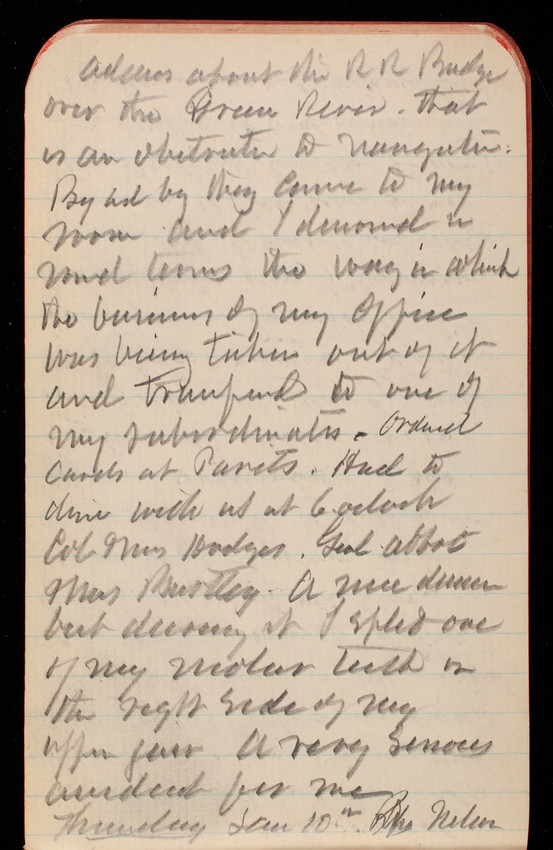 about the R R Bridge
over the Green River. that
is an obstructn to navigatn.
By ad by they came to my
room and I denound in
round terms the way in which
the business of my office
was being taken out of it
and transferred to one of
my subordinates. Ordered
cards at Parets. Had to
dine with us at 6 oclock
Col & Mrs Hodges. Genl Abbot
Mrs A nice dinner
but during it I split one
of my molar teeth on
the right side of my
upper jaw A very serious
accident for me
Thursday Jan 10th. Nelson